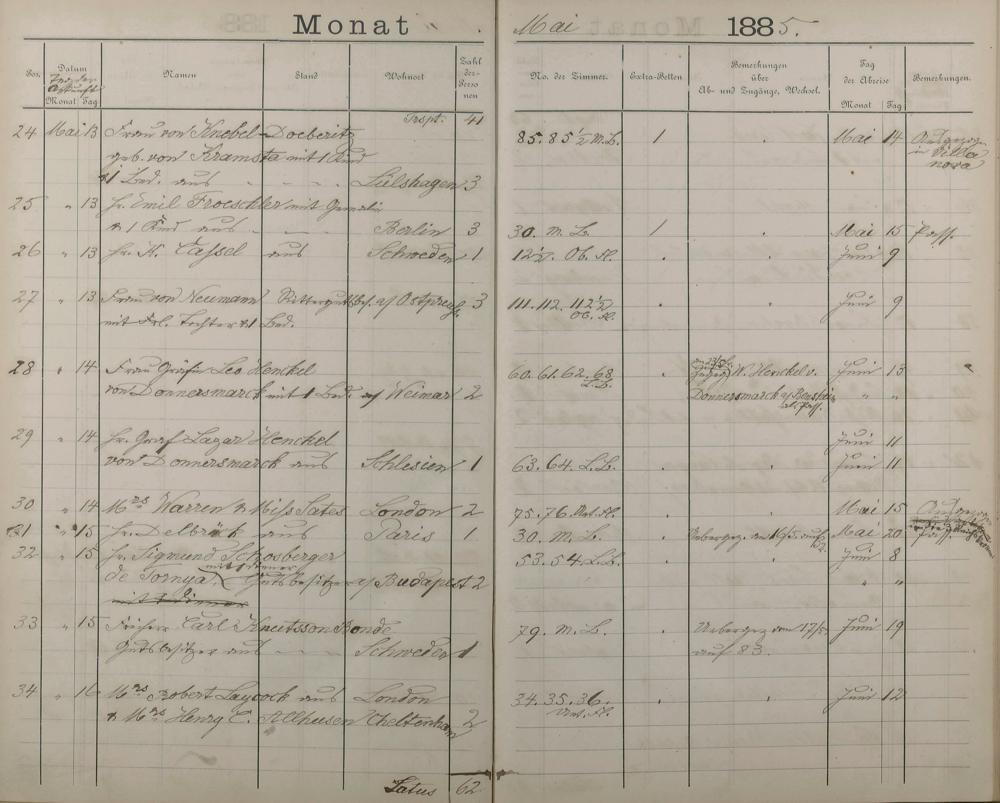 Monat Mai 1885.
Pos. Datum Namen Stand Wohnort Zahl der Personen No. der Zimmer. Extra-Betten Bemerkungen über Ab- und Zugänge, Wechsel. Tag der Abreise Bemerkungen.
Monat Tag Monat Tag
Trspt. 41
24 Mai 13 Frau von Knebel-Doeberitz 85. 85 1/2 M.L. 1 Mai 14
geb. von Kramsta mit 1 Kind in Villa
& 1 Bed. aus 3 nova
25 " 13 Hr. Emil Froeschler mit Gemalin
& 1 Kind aus Berlin 3 30. M. L. 1 Mai 15 Pass.
26 " 13 Hr. K. Cassel aus Schweden 1 12 1/2. Juni 9
27 " 13 Frau von Neumann Rittergutsbes. a/ Ostpreuss. 3 111. 112. 112 1/2 Juni 9
mit Frl. Tochter & 1 Bed.
28 " 14 Frau Gräfin Leo Henckel 60. 61. 62. 68 W. Henckel v. Juni 13
von Donnersmarck mit 1 Bed. a/ Weimar 2 L.L. Donnersmarck " "
als Pass.
29 " 14 Hr. Graf Lazar Henckel Juni 11
von Donnersmarck aus Schlesien 1 63. 64. L.L. Juni 11
30 " 14 Mrs Warren & Miss Sates London 2 75. 76. Mai 15
31 " 15 Hr. Delbrück aus Paris 1 30. M. L. Mai 20 Pass.
32 " 15 Hr. Sigmund Schosberger 53. 54. L.L. Juni 8
mit 1 Diener
de Tornya, Gutsbesitzer a/ Budapest 2 " "
mit 1 Diener
33 " 15 Freiherr Carl Knutsson Bonde 79. M. L. Uebergez. den 17/5 Juni 19
Gutsbesitzer aus Schweden 1 auf 83.
34 " 16 Mrs Robert Laycock aus London 34. 35. 36. Juni 12
& Mrs Henry E. Allhusen Cheltenham 2
Latus 62